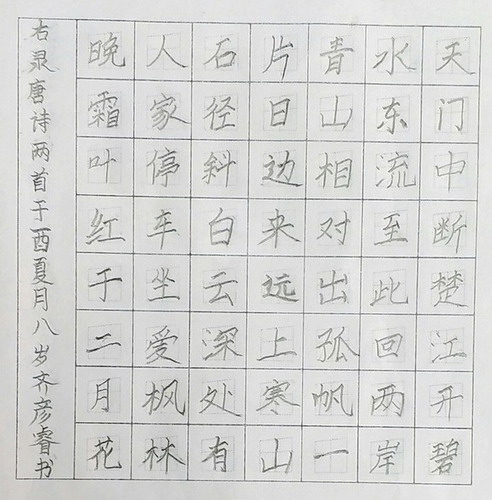 天门中断楚江开碧
水东流至此回两岸
青山相对出孤帆一
片日边来远上寒山
石径斜白云深处有
人家停车坐爱枫林
晚霜叶红于二月花
右录唐诗两首于酉夏月八岁齐彦睿书